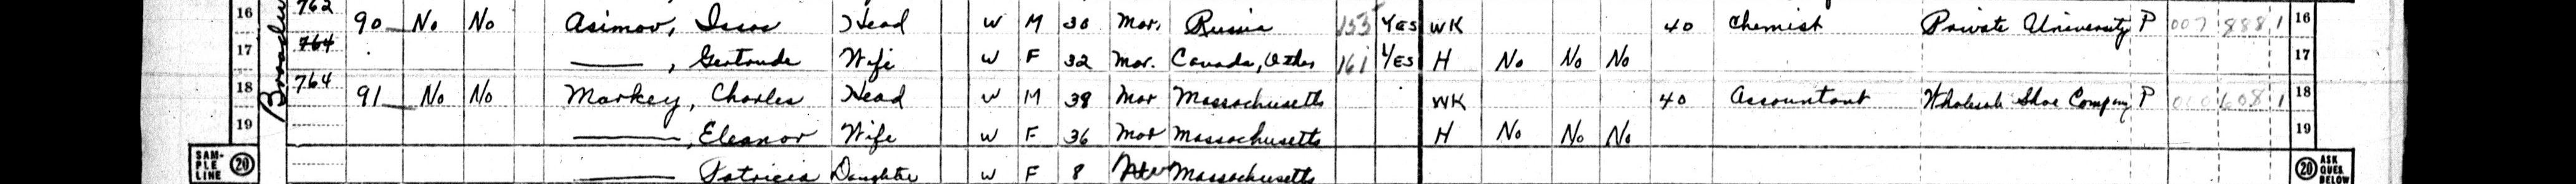 16 762 90 No No Asimov, Isaac Head W M 30 Mar. Russia 155 YES WK 40 Chemist Private University P 007 888 1 16
17 764 ———, Gertrude Wife W F 32 Mar. Canada, Other 161 YES H No No No 17
18 764 91 No No Markey, Charles Head W M 39 Mar Massachusetts WK 40 Accountant Wholesale Shoe Company P 608 1 18
19 ———, Eleanor Wife W F 36 Mar Massachusetts H No No No 19
SAM-PLE LINE 20 ——— Patricia Daughter W F 8 Massachusetts 20 ASK QUES. BELOW